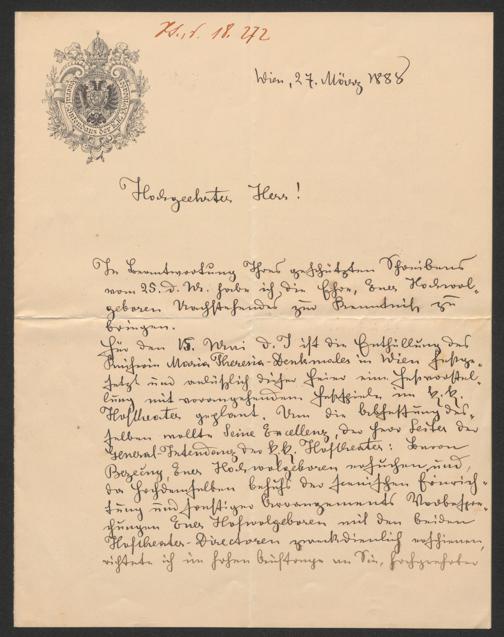 Zs., d. 18. 272
Wien, 27. März 1888
Hochgeehrter Herr!
In Beantwortung Ihres geschätzten Schreibens
vom 25. d. M. habe ich die Ehre, Euer Hochwol-
geboren Nachstehendes zur Kenntniß zu
bringen.
Für den 15. Mai d. J ist die Enthüllung des
Kaiserin Maria Theresia-Denkmales in Wien festge-
setzt und anläßlich dieser Feier eine Festvorstel-
lung mit vorangehendem Festspiele im k. k.
Hoftheater geplant. Um die Abfassung des-
selben wollte Seine Excellenz, der Herr Leiter der
General-Intendanz der k. k. Hoftheater: Baron
Bezecny, Euer Hochwolgeboren ersuchen und,
da Hochdemselben behufs der scenischen Einrich-
tung und sonstiger Arrangements Vorbespre-
chungen Euer Hochwolgeboren mit den beiden
Hoftheater-Directoren zweckdienlich erschienen,
richtete ich im hohen Auftrage an Sie, hochgeehrter